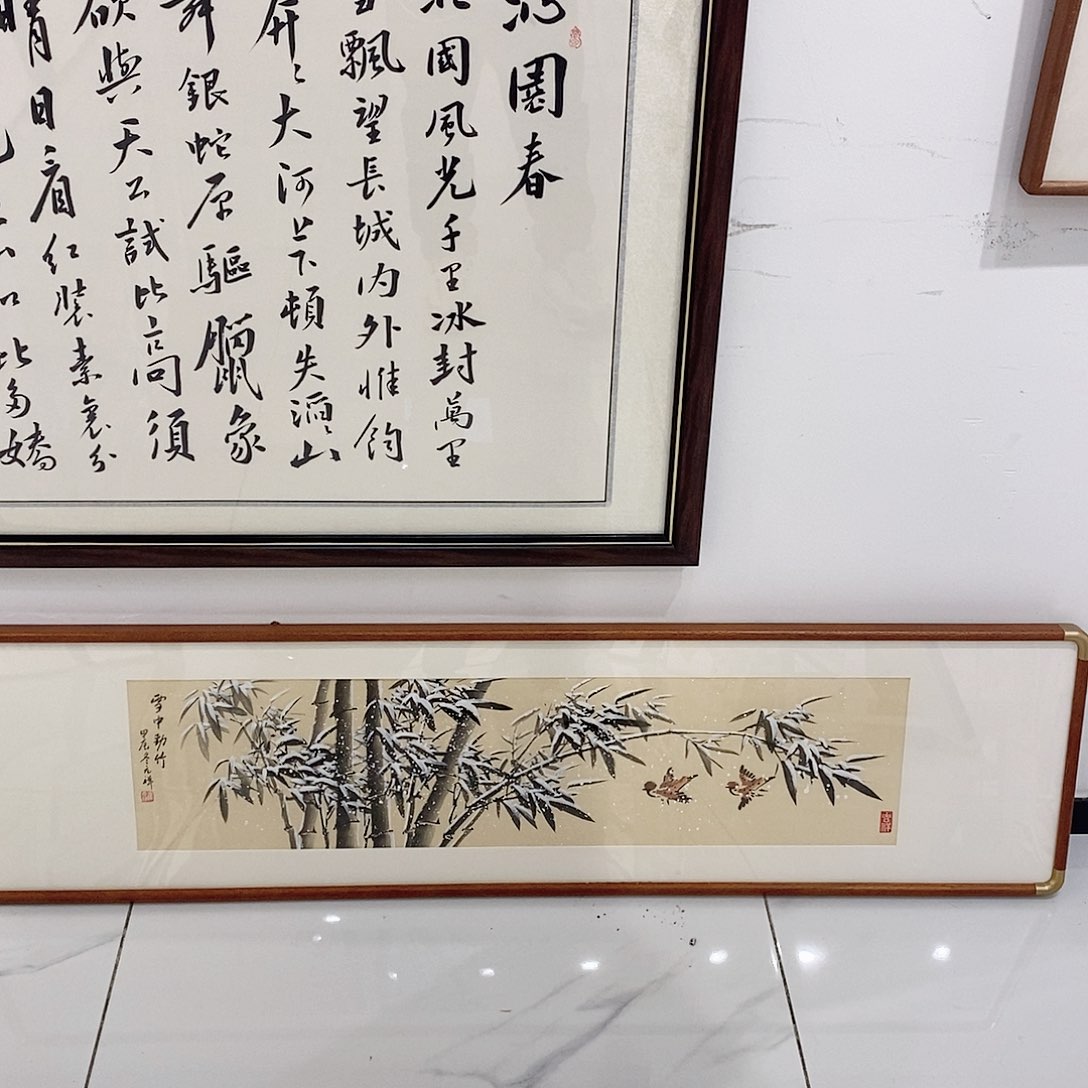 園春
國風光千里冰封萬里
飄望長城内外惟
大河上下頓失滔〻山
舞銀蛇原驅臘象
欲與天公試比高須
晴日看紅裝素裹分
如此多嬌
雪中勁竹
甲辰冬
吉祥